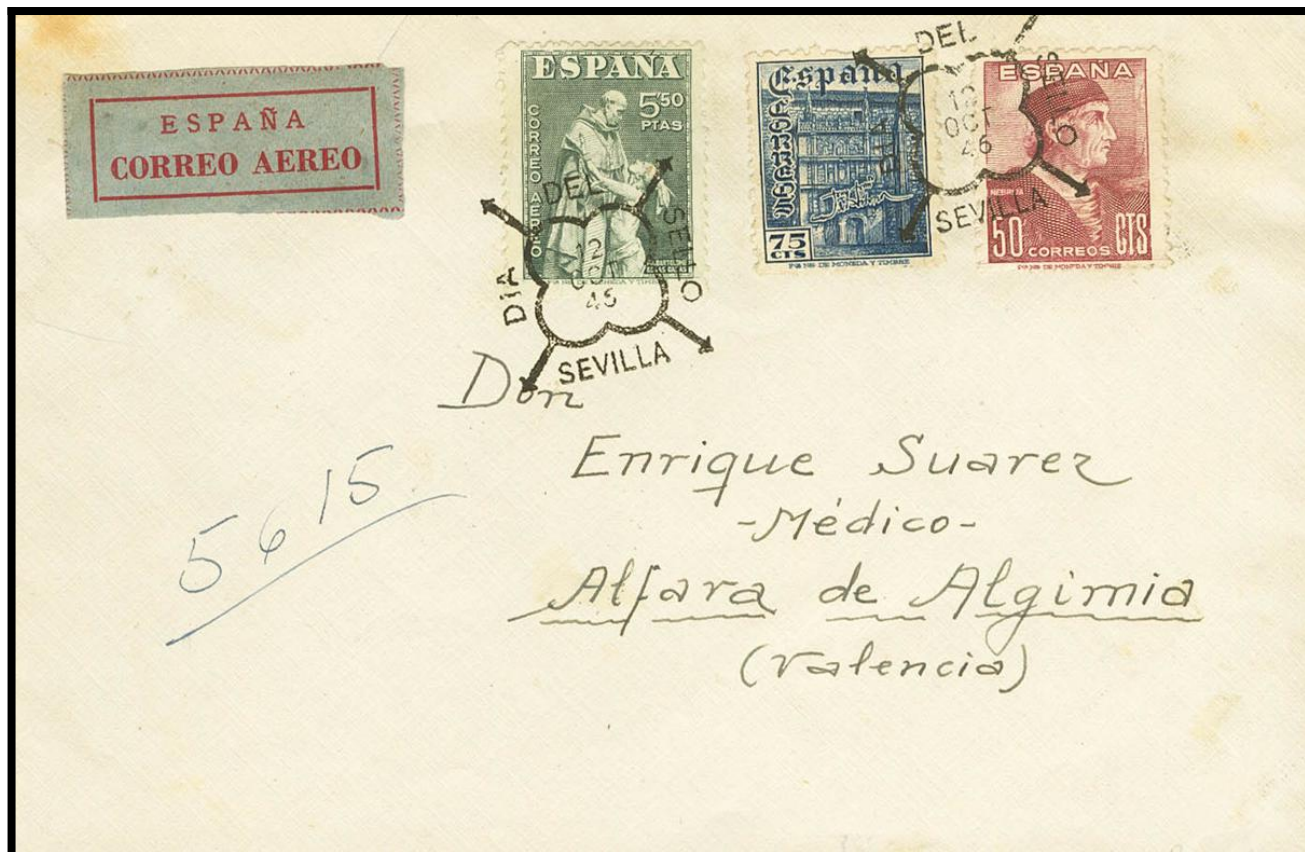 ESPAÑA
CORREO AEREO
ESPAÑA
5'50
PTAS
CORREO AEREO
DÍA DEL SELLO
12
OCT
46
SEVILLA
España
75
CTS
FAB. NAL. DE MONEDA Y TIMBRE
DEL
12
OCT
46
SEVILLA
ESPAÑA
NEBRIJA
50 CORREOS CTS
Don
Enrique Suarez
-Médico-
Alfara de Algimia
(Valencia)
5615